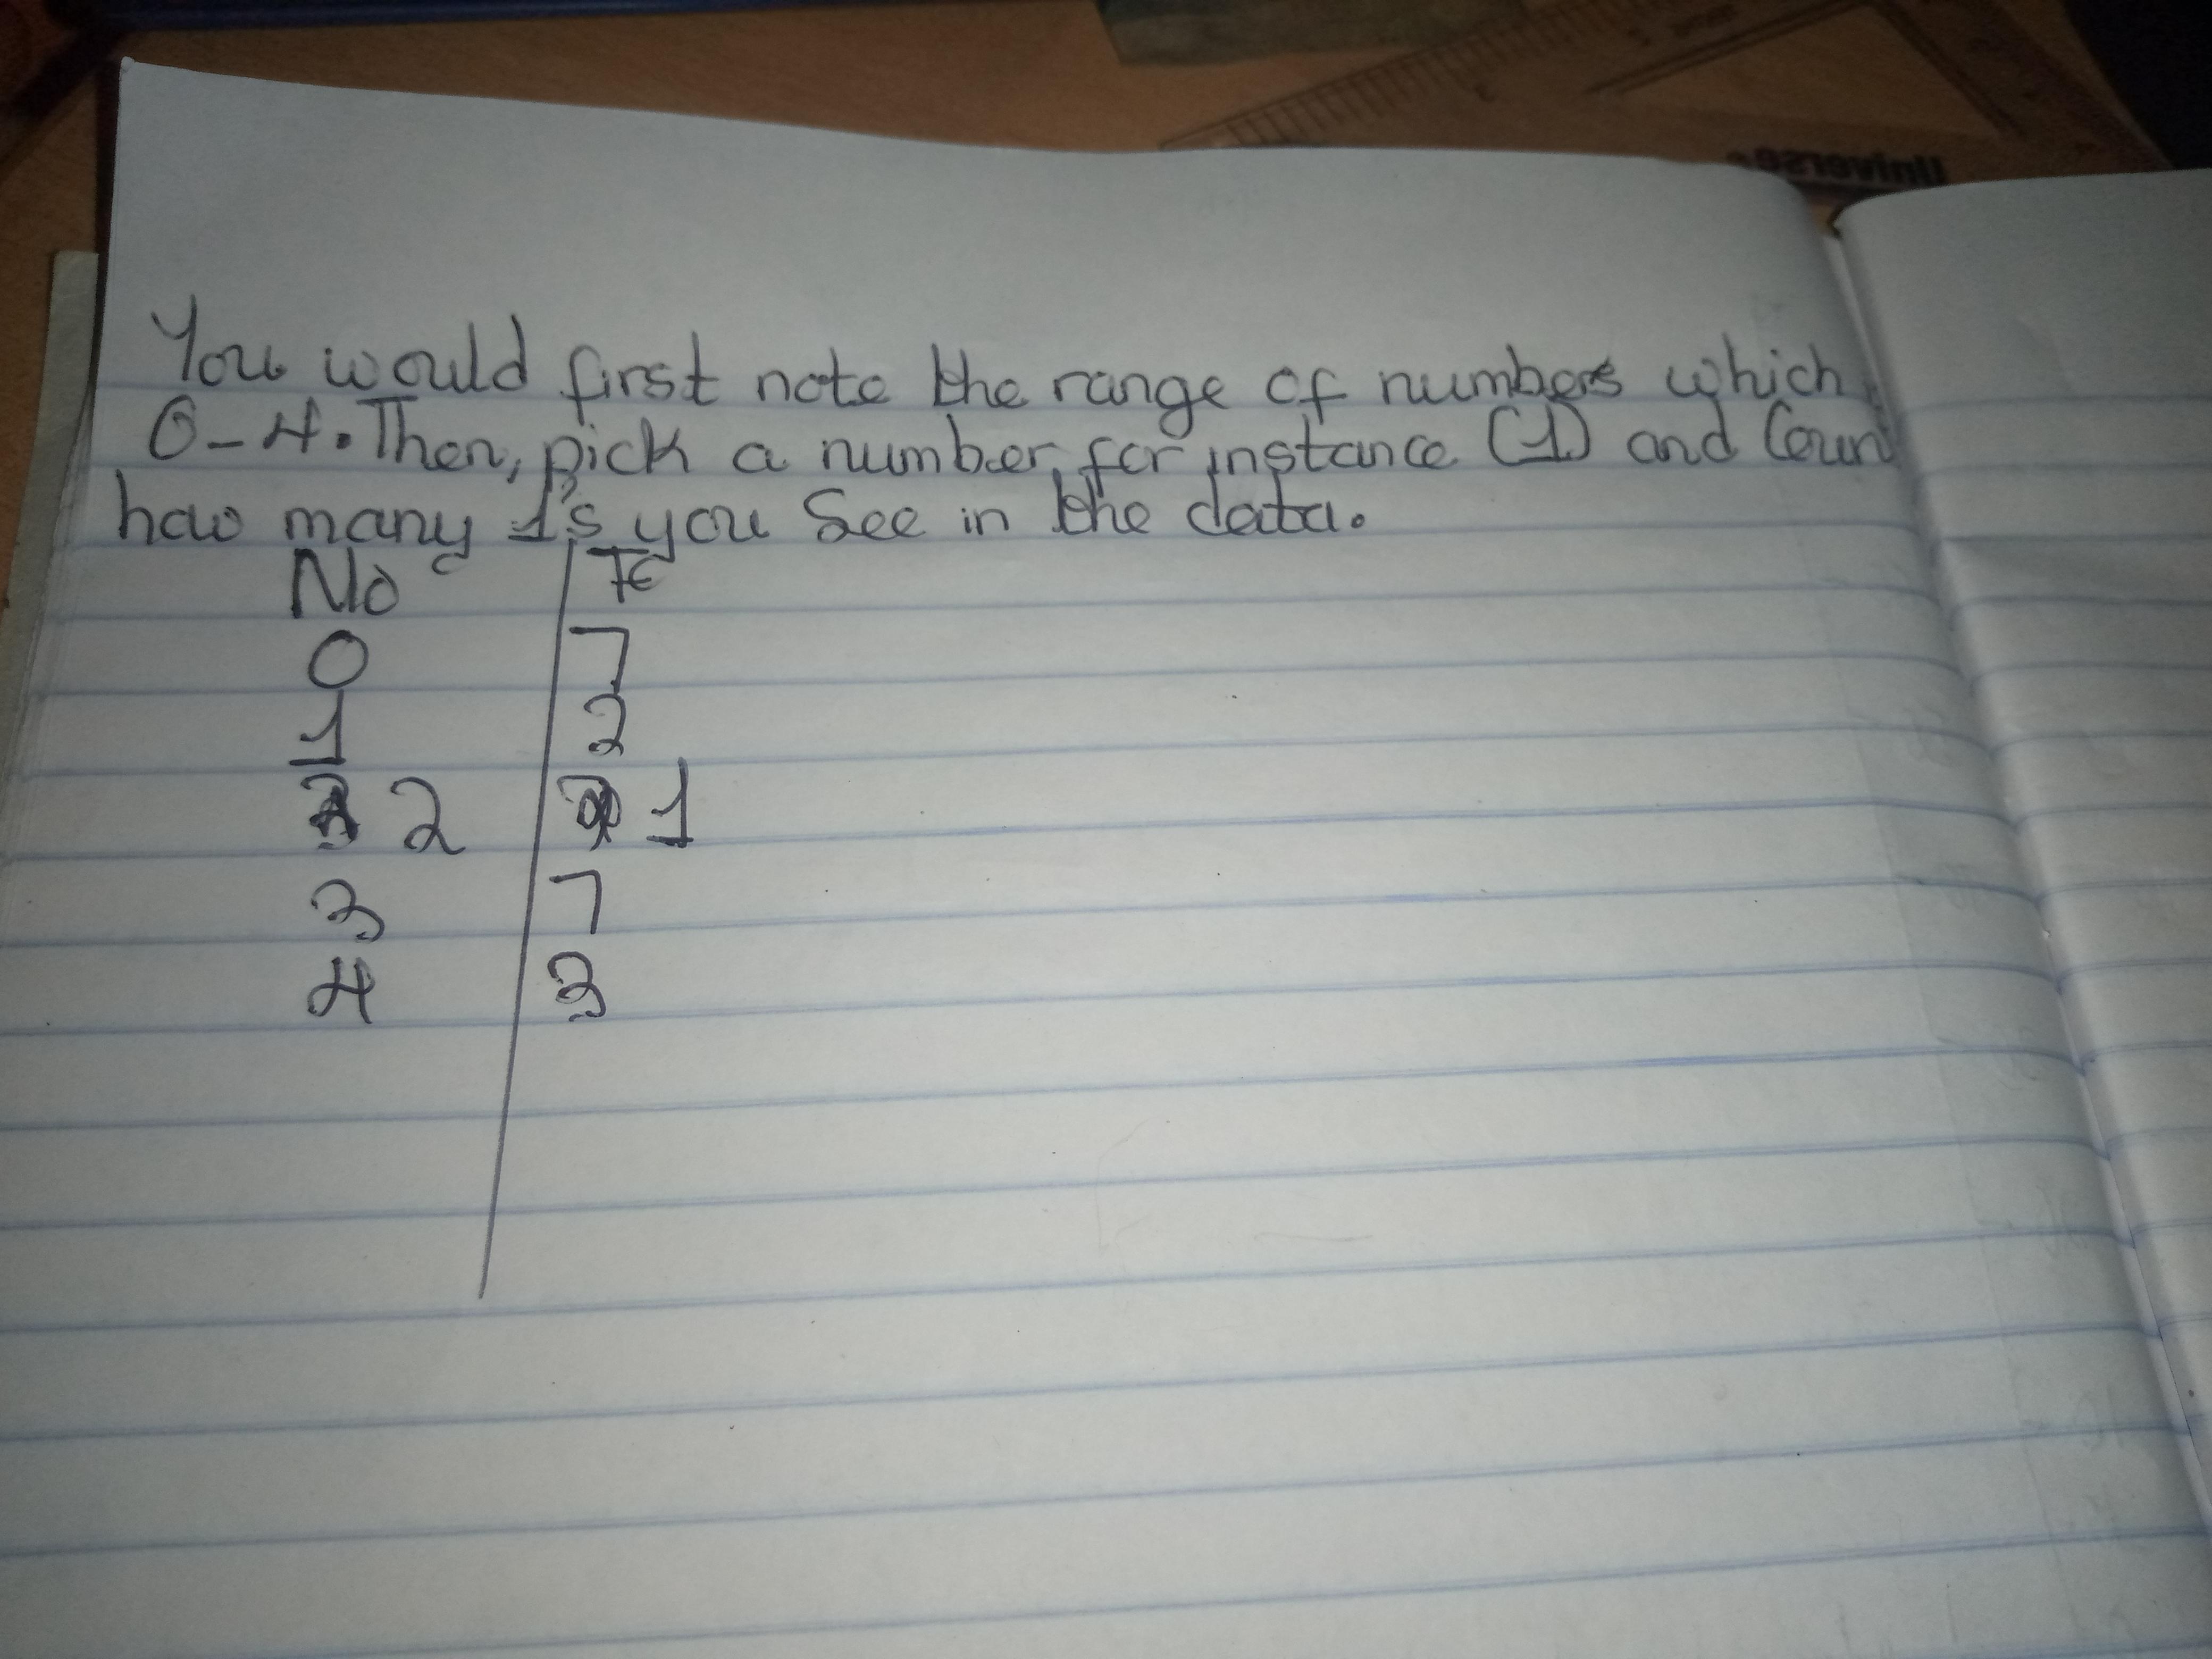 Universe
You would first note the range of numbers which
0-4. Then, pick a number for instance (1) and Coun
how many 1's you See in the data.
No
0 7
1 2
2 1
3 7
4 3